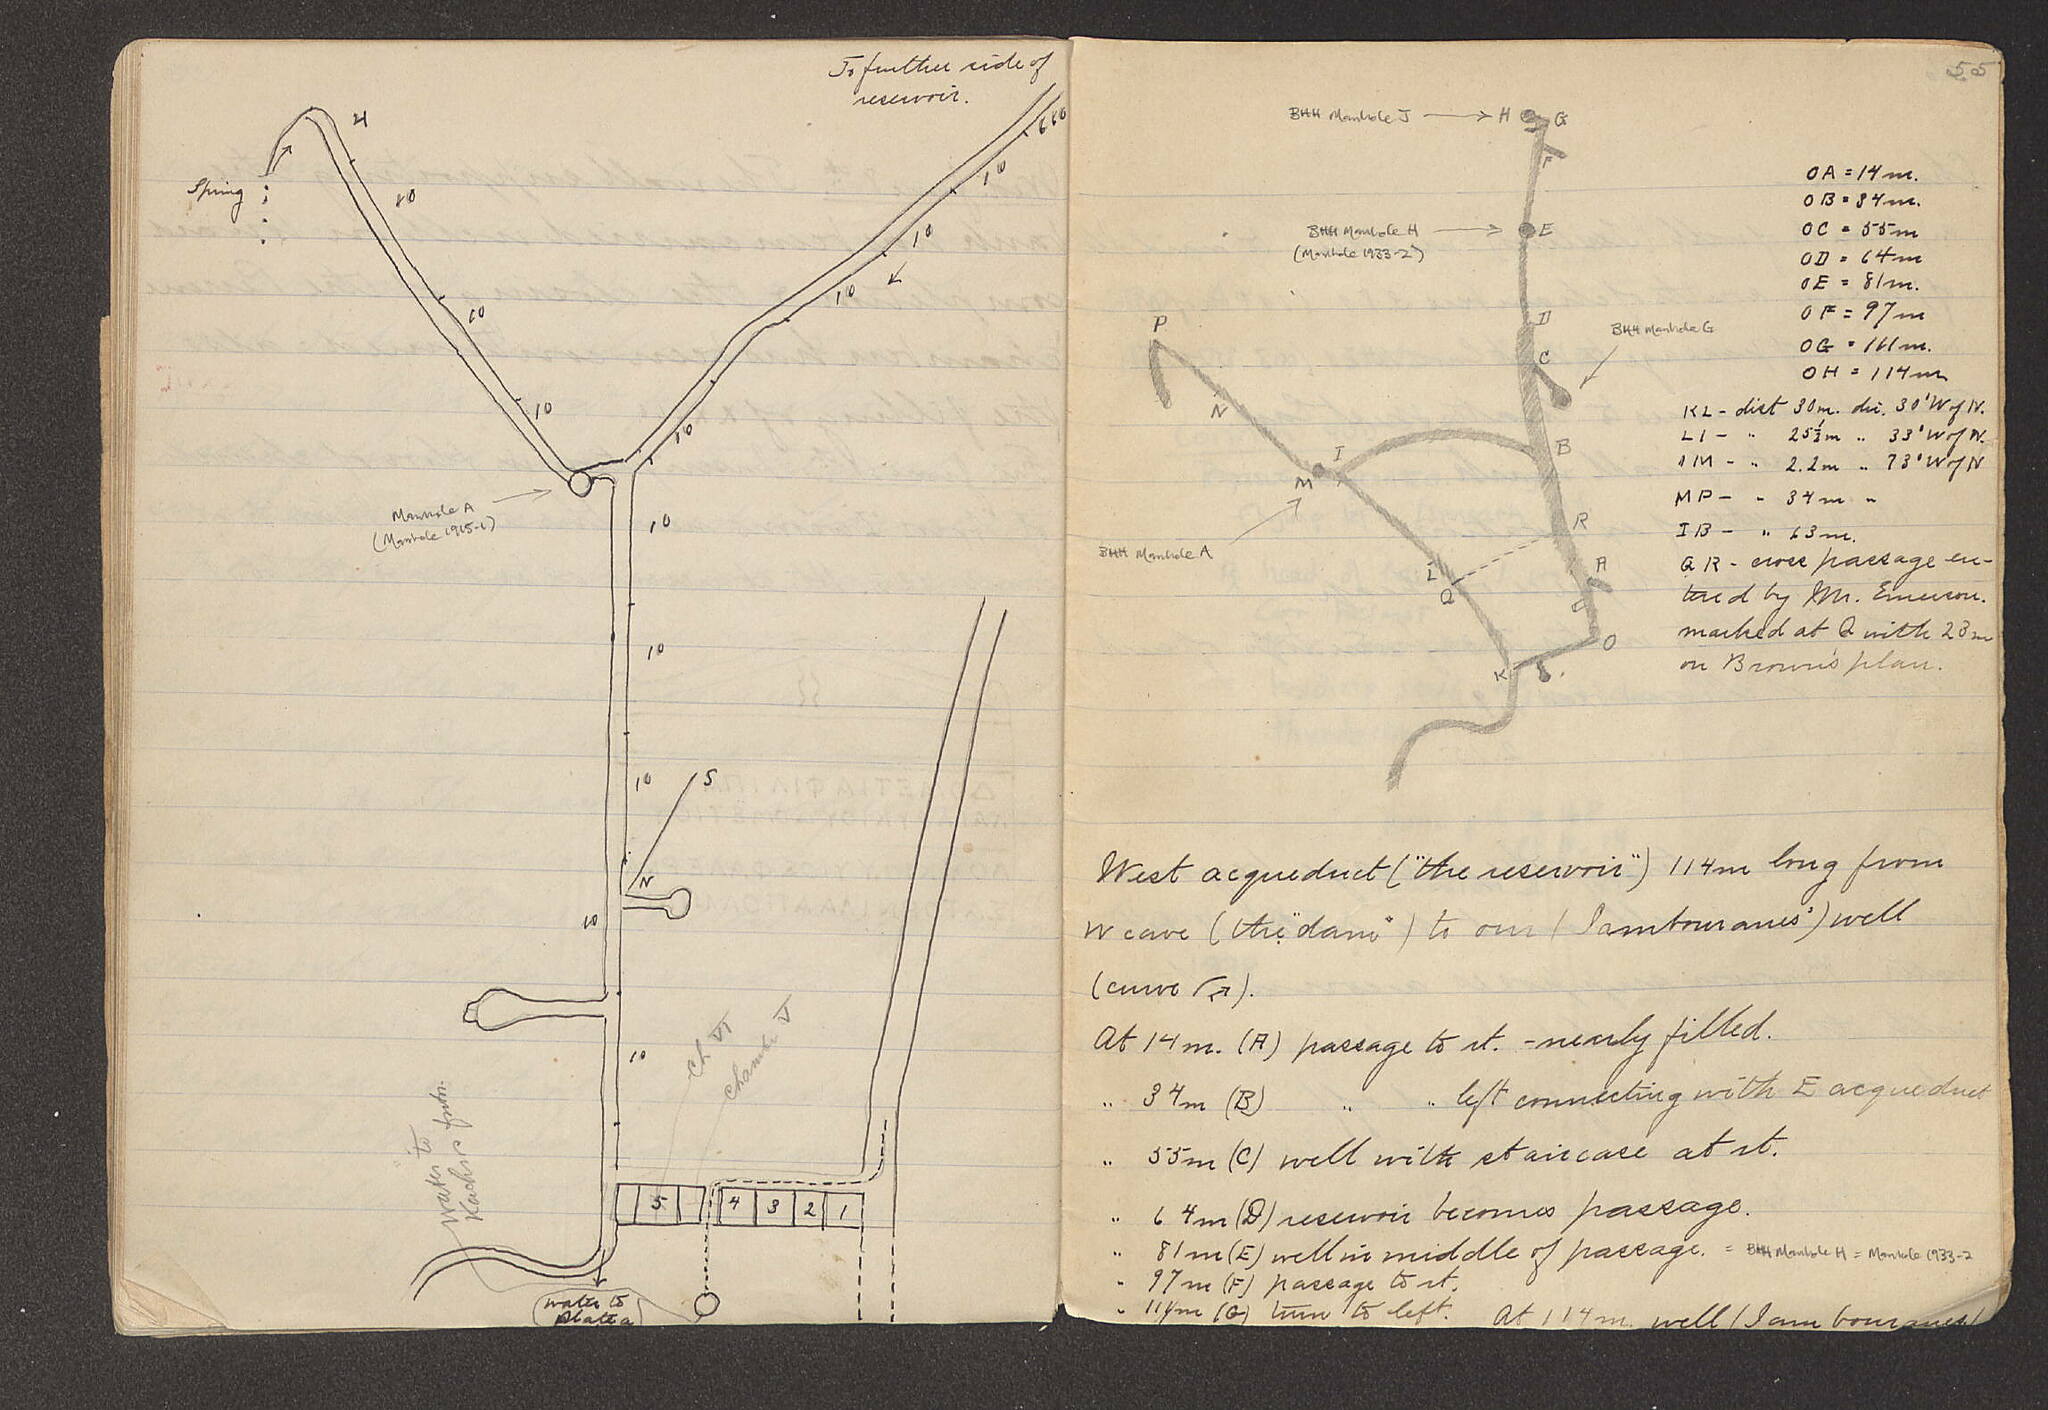 To further side of
reservoir.
4
Spring
10
10
10
Manhole A
(Manhole 1915-1)
10
10
10
10
10
10
10
10
S
N
10
10
Ch VI
Chamber V
Water to
5
4
3
2
1
water to
55
BHH Manhole J
H
G
F
BHH Manhole H
(Manhole 1933-2)
E
D
BHH Manhole G
C
P
N
I
B
M
R
BHH Manhole A
L
Q
A
O
K
OA = 14 m.
OB = 34 m.
OC = 55 m
OD = 64 m
OE = 81 m.
OF = 97 m
OG = 111 m.
OH = 114 m
KL - dist 30 m. dir. 30° W of N.
LI - " 25½ m " 33° W of N.
IM - " 2.2 m " 73° W of N
MP - " 34 m "
IB - " 63 m.
QR - cross passage en-
tered by Mr. Emerson.
marked at Q with 23 m
on Brown's plan.
West acqueduct ("the reservoir") 114 m long from
W cave (the "dam") to our (Iambouranes') well
(curve ).
At 14 m. (A) passage to rt. - nearly filled.
" 34 m (B) " " left connecting with E acqueduct
" 55 m (C) well with staircase at rt.
" 64 m (D) reservoir becomes passage.
" 81 m (E) well in middle of passage. = BHH Manhole H = Manhole 1933-2
" 97 m (F) passage to rt.
" 111 m (G) turn to left. At 114 m. well (Iambouranes)